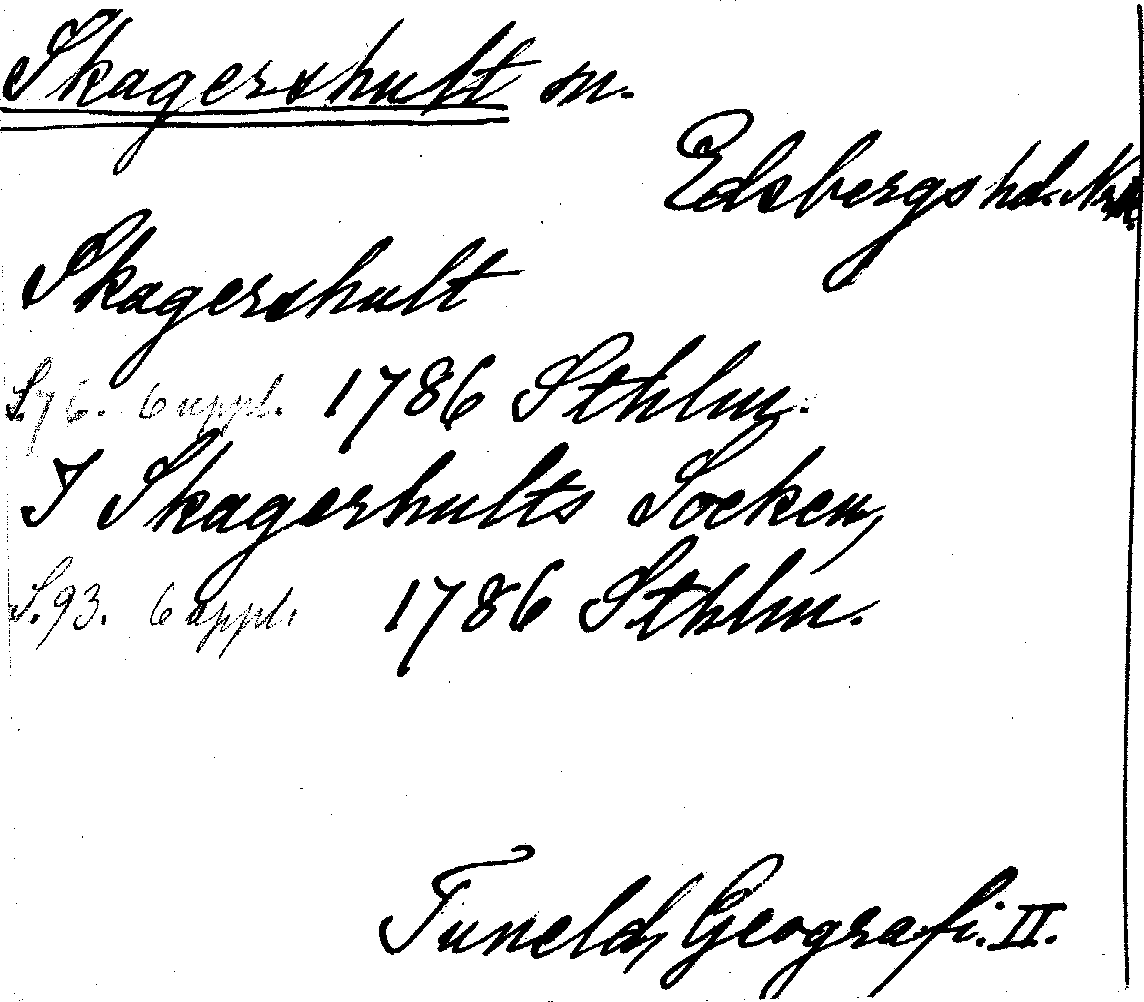 Skagershult sn.
Edsbergs hd.
Skagershult
S. 76. 6 uppl. 1786 Sthlm.
I Skagerhults Socken,
S. 93. 6 uppl. 1786 Sthlm.
Tuneld, Geografi. II.